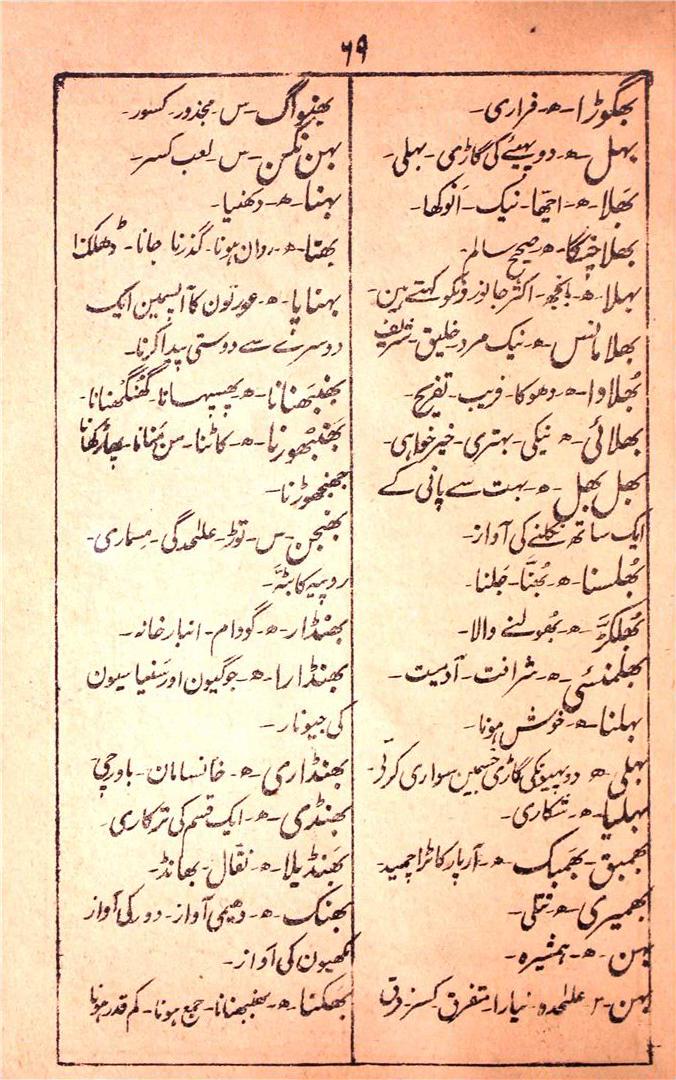 ۶۹
بھگوڑا۔ھ۔ فراری۔
بہل۔ھ۔ دو پہیئے کی گاڑی۔ بہلی۔
بھلا۔ھ۔ اچھا۔ نیک۔ انوکھا۔
بھلا چنگا۔ھ۔ صحیح سالم۔
بہلا۔ھ۔ بانجھ۔ اکثر جانورونکو کہتے ہین۔
بھلا مانس۔ھ۔ نیک مرد۔ خلیق۔ شریف
بُھلاوا۔ھ۔ دھوکا۔ فریب۔ تفریح۔
بھلائی۔ھ۔ نیکی۔ بہتری۔ خیرخواہی۔
بھل بھل۔ھ۔ بہت سے پانی کے
ایک ساتھ نکلنے کی آواز۔
بُھلسنا۔ھ۔ بُھننا۔ جلنا۔
بُھلکڑ۔ھ۔ بھولنے والا۔
بھلمنسئی۔ھ۔ شرافت۔ آدمیت۔
بہلنا۔ھ۔ خوش ہونا۔
بہلی۔ھ۔ دو پہیونکی گاڑی جسمین سواری کرتے۔
بہلیا۔ھ۔ شکاری۔
بھمبق۔ بھمبک۔ھ۔ آرپار کا بڑا چھید۔
بھمیری۔ھ۔ تتلی۔
بہن۔ھ۔ ہمشیرہ۔
بہن۔ علٰحدہ۔ نیارا۔ متفرق۔ کسر۔ فرق
بھنیواگ۔س۔ مجذور۔ کسور۔
بہن نکمن۔س۔ لعب کسر۔
بہنا۔ھ۔ دھنیا۔
بھتا۔ھ۔ روان ہونا۔ گذرنا جانا۔ ڈھلکنا
بہناپا۔ھ۔ عورتون کا آپسمین ایک
دوسرے سے دوستی پیدا کرنا۔
بھنبھنانا۔ھ۔ پھسپھسانا۔ گھنگھنانا۔
بھنبھوڑنا۔ھ۔ کاٹنا۔ پھاڑ کھانا
جھنجھوڑنا۔
بھنجن۔س۔ توڑ۔ علٰحدگی۔ مسماری۔
روپیہ کا بٹہ۔
بھنڈار۔ھ۔ گودام۔ انبار خانہ۔
بھنڈارا۔ھ۔ جوگیون اور سنیاسیون
کی جیونار۔
بھنڈاری۔ھ۔ خانسامان۔ باورچی
بھنڈی۔ھ۔ ایک قسم کی ترکاری۔
بھنڈیلا۔ھ۔ نقّال۔ بھانڈ۔
بھنک۔ھ۔ دھیمی آواز۔ دور کی آواز
مکھیون کی آواز۔
بھنکنا۔ھ۔ بھنبھنانا۔ جمع ہونا۔ کم قدر ہونا